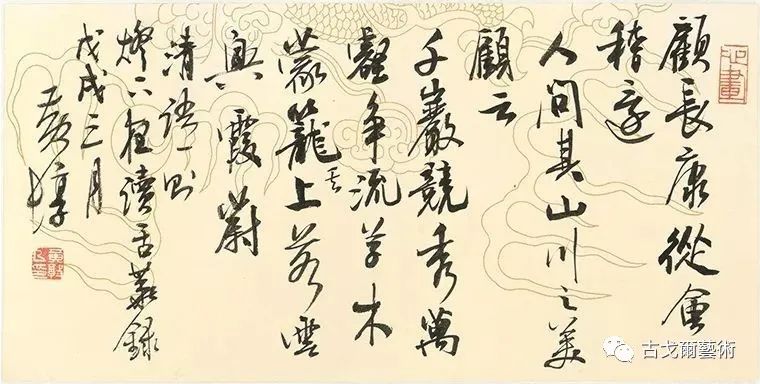 心畫
顧長康從會
稽還
人問其山川之美
顧云
千巖競秀萬
壑爭流草木
蒙籠其上若雲
興霞蔚
清語一則
燈下讀舌華錄
戊戌三月
黃惇
古戈爾藝術